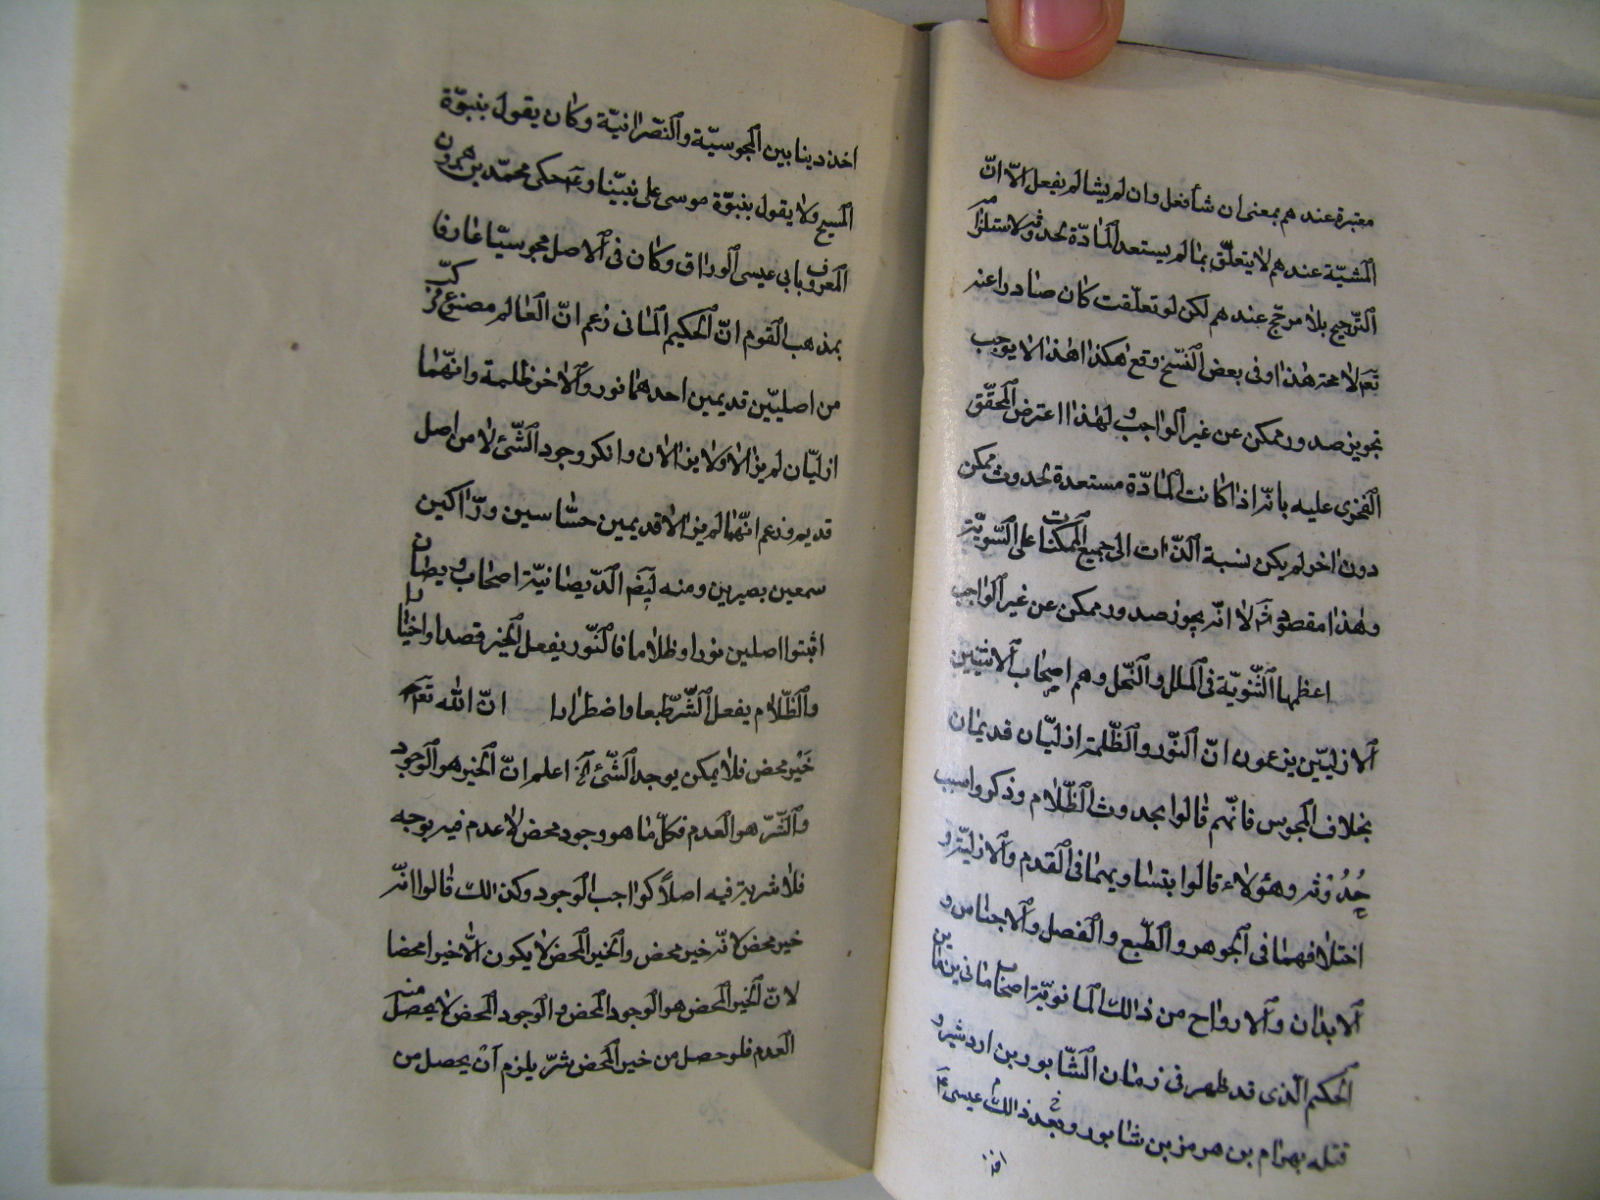 معتبرة عندهم بمعنى ان شأ فعل وان لم يشا لم يفعل الّا انّ
المشيّة عندهم لا يتعلّق بما لم يستعد المادّة لحدوثه لاستلزا
التّرجيح بلا مرجّح عندهم لكن لو تعلّقت كان صادرا عنه
تعم لا عن هذا وفى بعض النّسخ وقع هكذا هذا لا يوجب
تجويز صدور ممكن عن غير الواجب ولهذا اعترض المحقّق
الفخرى عليه بانّه اذا كانت المادّة مستعدة لحدوث ممكن
دون اخر لم يكن نسبة الذّات الى جميع الممكنات على السّويّة
وهذا مقصوده ثم لا انّه يجوز صدور ممكن عن غير الواجب
اعظمها الثّنويّة فى الملل والنّحل وهم اصحاب الاثنين
الازليّين يزعمون انّ النّور والظّلمة ازليّان قديمان
بخلاف المجوس فانّهم قالوا بحدوث الظّلام وذكروا سبب
حُدُوْثه وهؤلاء قالوا بتساويهما فى القدم والازليّة و
اختلافهما فى الجوهر والطّبع والفصل والاجناس و
الابدان والارواح من ذالك المانويّة اصحاب مانى بن ماين
الحكيم الّذى قد ظهر فى زمان الشّابور بن اردشير و
قتله بهرام بن هرمز بن شابور وبعد ذالك عيسى عم
اخذ دينا بين المجوسيّة والنّصرانيّة وكان يقول بنبوّة
المسيح ولا يقول بنبوّة موسى على نبيّنا وعم حكى محمّد بن هرون
المعروف بابى عيسى الوراق وكان فى الاصل مجوسيّا عارفا
بمذهب القوم انّ الحكيم المانى زعم انّ العالم مصنوع مركّب
من اصليّين قديمين احدهما نور والاخر ظلمة وانّهما
ازليّان لم يزالا ولا يزالان وانكر وجود الشّئ لا من اصل
قديم وزعم انّهما لم يزالا قديمين حسّاسين ورّاكين
سمعين بصيرين ومنه ايضم الدّيصانيّة اصحاب ديصان
اثبتوا اصلين نورا وظلاما فالنّور يفعل الخير قصدا واختيارا
والظّلام يفعل الشّرّ طبعا واضطرارا انّ الله تعم
خَيْر محض فلا يمكن يوجد الشّئ آلخ اعلم انّ الخير هو الوجود
والشّرّ هو العدم فكلّ ما هو وجود محض لا عدم فيه بوجه
فلا شرية فيه اصلاً كواجب الوجود وكذالك قالوا انّه
خير محض لانّه خير محض والخير المحض لا يكون الّا خيرا محضا
لانّ الخير المحض هو الوجود المحض والوجود المحض لا يحصل منه
العدم فلو حصل من خير المحض شرّ يلزم انْ يحصل من